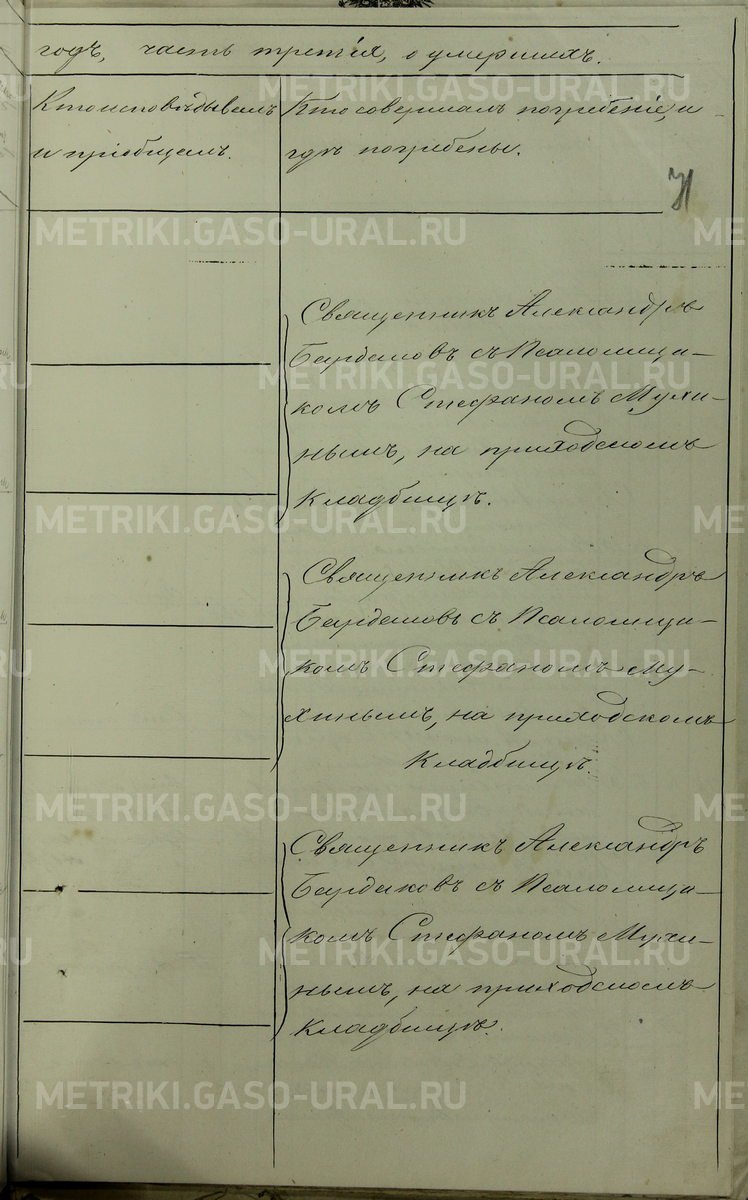 годъ, часть третія, о умершихъ.
Кто исповѣдывалъ
и пріобщалъ.
Кто совершалъ погребеніе, и
гдѣ погребены.
71
Священникъ Александръ
Бардаковъ съ Псаломщи–
комъ Стефаномъ Мухи–
нымъ, на приходскомъ
кладбищѣ.
Священникъ Александръ
Бардаковъ съ Псаломщи–
комъ Стефаномъ Му–
хинымъ, на приходскомъ
кладбищѣ.
Священникъ Александръ
Бардаковъ съ Псаломщи–
комъ Стефаномъ Мухи–
нымъ, на приходскомъ
кладбищѣ.
METRIKI.GASO-URAL.RU